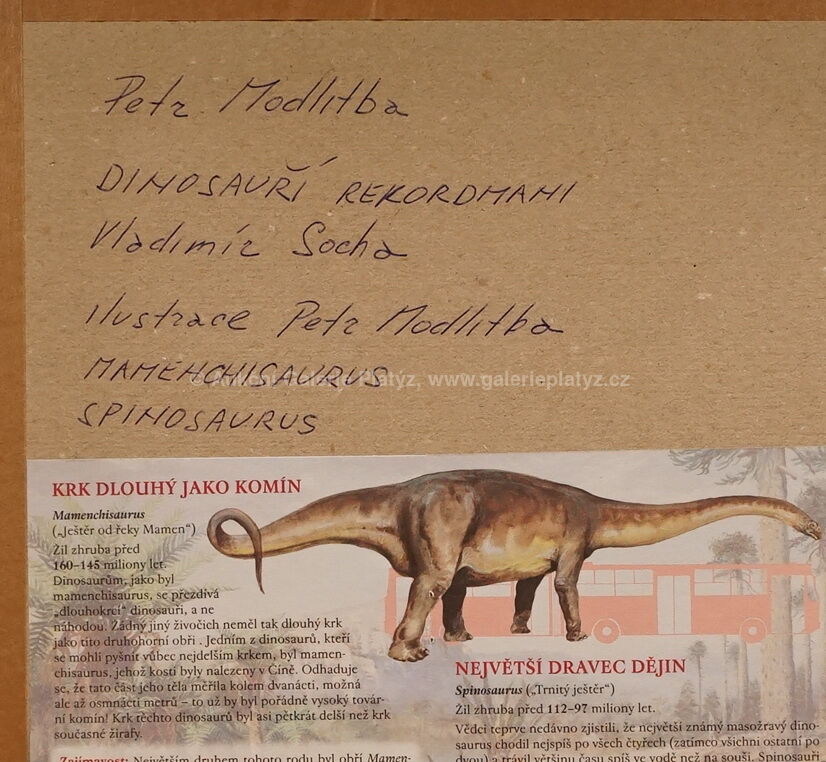 Petr Modlitba
DINOSAUŘÍ REKORDMANI
Vladimír Socha
ilustrace Petr Modlitba
MAMENCHISAURUS
www.galerieplatyz.cz
SPINOSAURUS
KRK DLOUHÝ JAKO KOMÍN
Mamenchisaurus
(„Ještěr od řeky Mamen“)
Žil zhruba před
160–145 miliony let.
Dinosaurům, jako byl
mamenchisaurus, se přezdívá
„dlouhokrcí“ dinosauři, a ne
náhodou. Žádný jiný živočich neměl tak dlouhý krk
jako tito druhohorní obři . Jedním z dinosaurů, kteří
se mohli pyšnit vůbec nejdelším krkem, byl mamen-
chisaurus, jehož kosti byly nalezeny v Číně. Odhaduje
se, že tato část jeho těla měřila kolem dvanácti, možná
ale až osmnácti metrů – to už by byl pořádně vysoký továr-
ní komín! Krk těchto dinosaurů byl asi pětkrát delší než krk
současné žirafy.
Zajímavost: Největším druhem tohoto rodu byl obří Mamen-
NEJVĚTŠÍ DRAVEC DĚJIN
Spinosaurus („Trnitý ještěr“)
Žil zhruba před 112–97 miliony let.
Vědci teprve nedávno zjistili, že největší známý masožravý dino-
saurus chodil nejspíš po všech čtyřech (zatímco všichni ostatní po
dvou) a trávil většinu času spíš ve vodě než na souši. Spinosauři